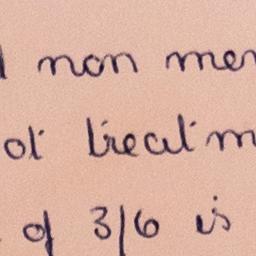 non mem
ot treatm
of 3/6 is